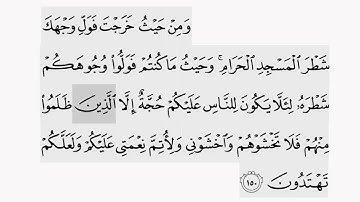 وَمِنْ حَيْثُ خَرَجْتَ فَوَلِّ وَجْهَكَ
شَطْرَ ٱلْمَسْجِدِ ٱلْحَرَامِ ۚ وَحَيْثُ مَا كُنتُمْ فَوَلُّوا۟ وُجُوهَكُمْ
شَطْرَهُۥ لِئَلَّا يَكُونَ لِلنَّاسِ عَلَيْكُمْ حُجَّةٌ إِلَّا ٱلَّذِينَ ظَلَمُوا۟
مِنْهُمْ فَلَا تَخْشَوْهُمْ وَٱخْشَوْنِى وَلِأُتِمَّ نِعْمَتِى عَلَيْكُمْ وَلَعَلَّكُمْ
تَهْتَدُونَ ١٥٠